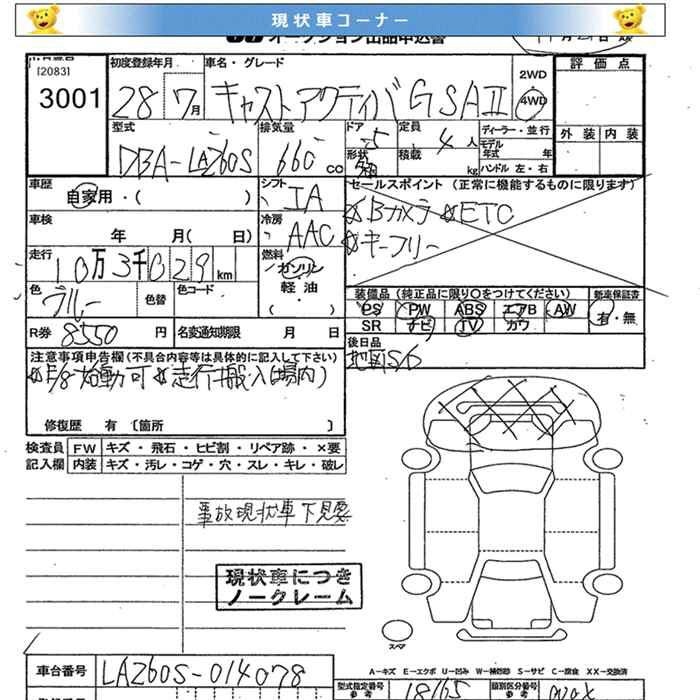 現状車コーナー
オークション出品申込書
[2083]
3001
初度登録年月
28 7月
車名・グレード
キャストアクティバ G SA II
2WD
4WD
評価点
外装 内装
型式
DBA-LA260S
排気量
660 cc
ドア
5
形状
定員
4人
積載
kg
ディーラー・並行
モデル年式 年
ハンドル 左・右
車歴
自家用・( )
シフト
IA
セールスポイント (正常に機能するものに限ります)
☆Bカメラ ☆ETC
☆キーフリー
車検
年 月( 日)
冷房
AAC
走行
10万3千029km
燃料
ガソリン
軽油・
( )
色
ブルー
色替
色コード
装備品 (純正品に限り〇をつけてください)
新車保証書
PS PW ABS エアB AW
SR ナビ TV カワ
有・無
R券 8550円
名変通知期限 月 日
後日品
地図SD
注意事項申告欄(不具合内容等は具体的に記入して下さい)
☆E/g始動可 ☆走行搬入(場内)
修復歴 有〔箇所 〕
検査員記入欄
FW キズ・飛石・ヒビ割・リペア跡・×要
内装 キズ・汚レ・コゲ・穴・スレ・キレ・破レ
事故現状車 下見要
現状車につき
ノークレーム
スペア
車台番号
LA260S-014078
A－キズ E－エクボ U－凹み W－補修跡 S－サビ C－腐食 XX－交換済
型式指定番号
参考
18165
類別区分番号
参考